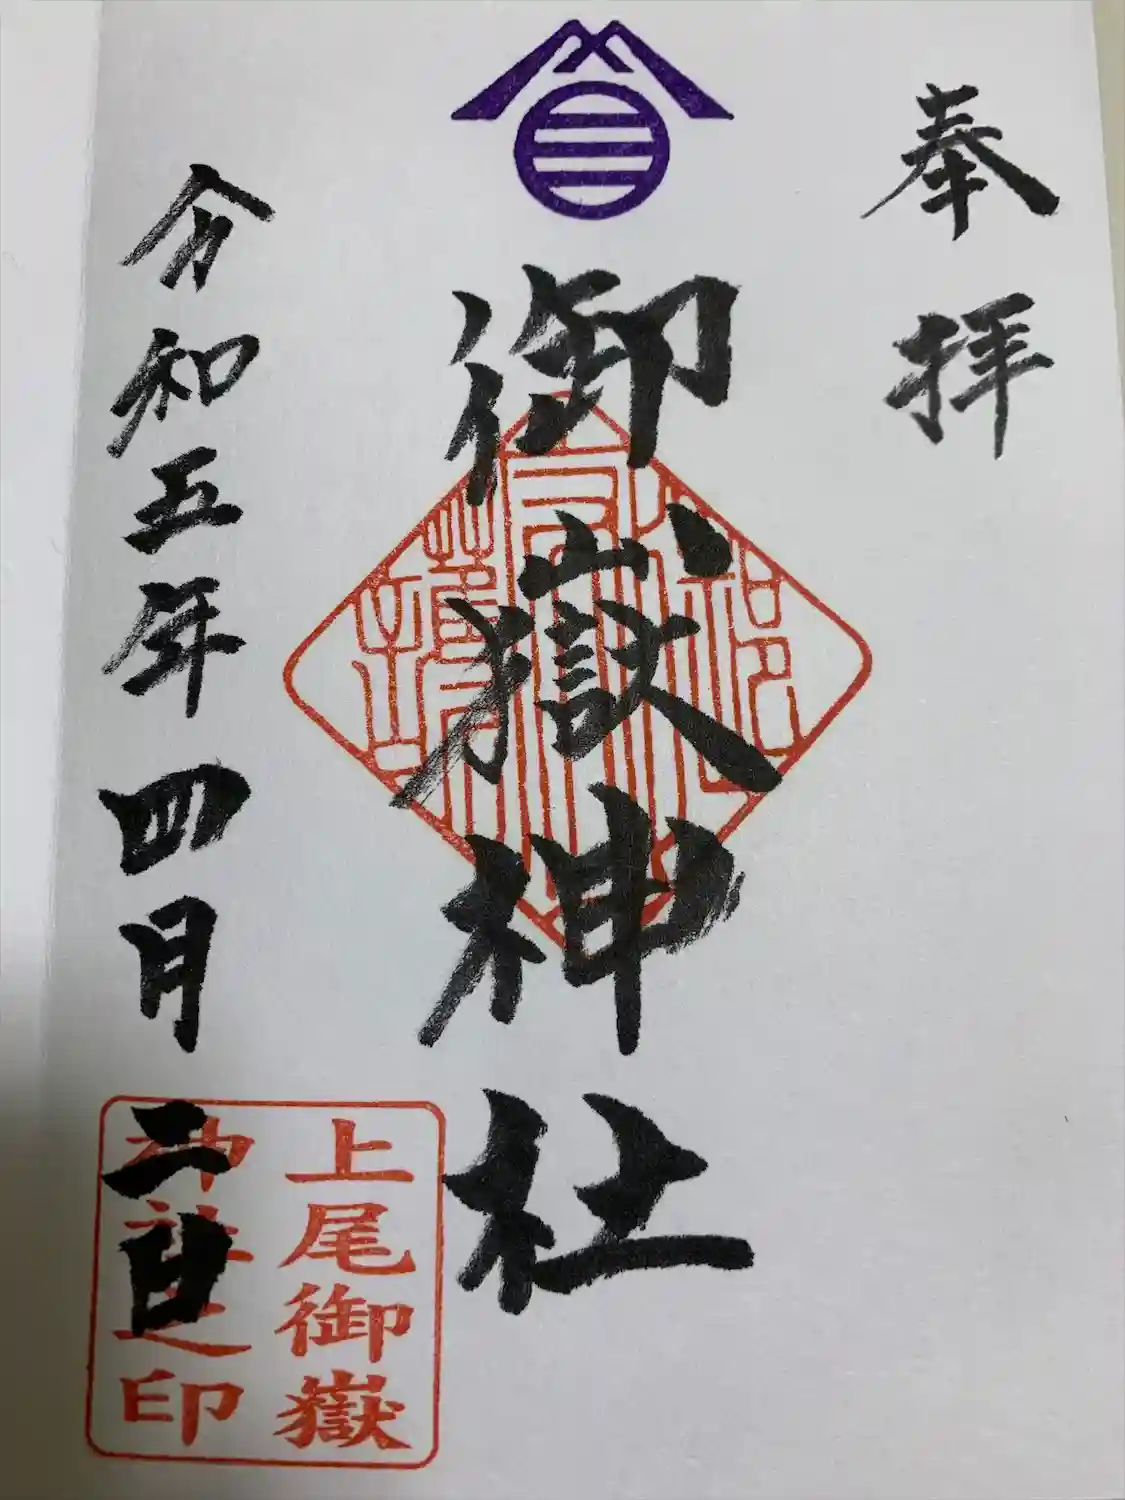 奉拝
御嶽神社
令和五年四月二日
上尾御嶽
神社之印